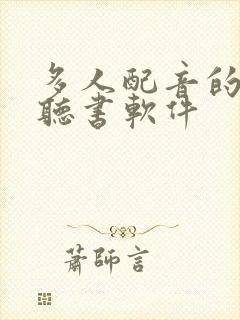 多人配音的
聽書軟件
蕭師言